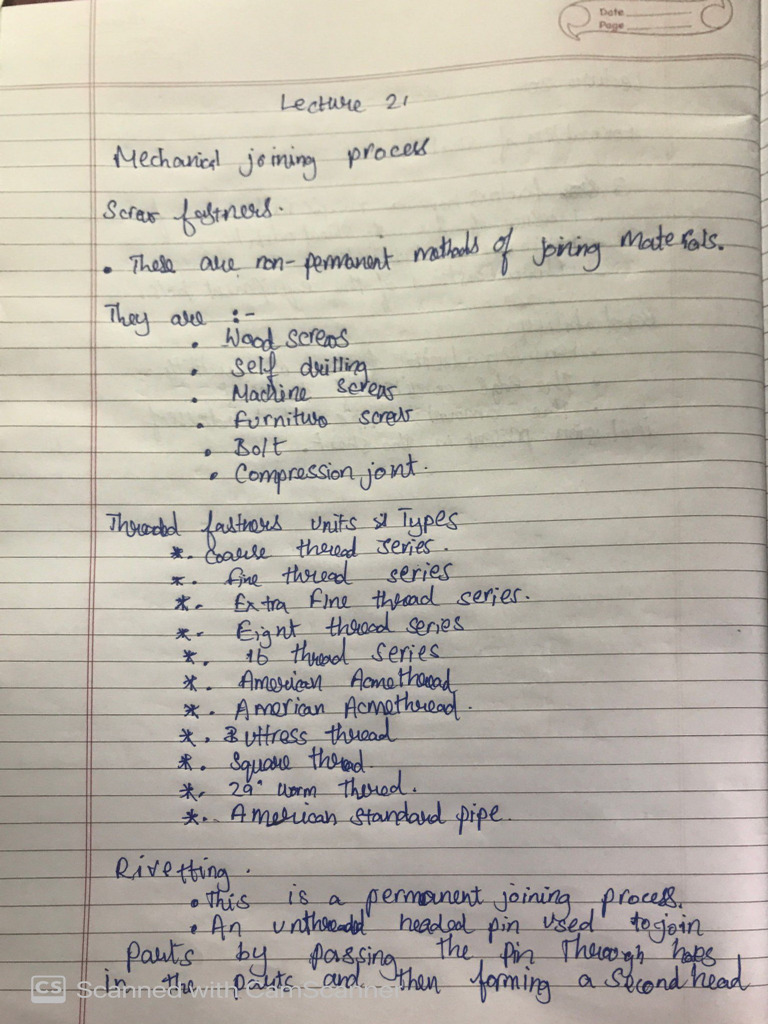 Date
Page
Lecture 21
Mechanical joining process
Screw fastners.
• These are non-permanent methods of joining Materials.
They are :-
• Wood screws
• Self drilling
• Machine screws
• Furniture screws
• Bolt
• Compression jont.
Threaded fastners units & Types
*. Coarse thread series.
*. fine thread series
*. Extra Fine thread series.
*. Eight thread series
*. 16 thread series
*. American Acmethread
*. American Acmethread.
*. Buttress thread
*. Square thread
*. 29° worm thered.
*. American standard pipe.
Rivetting.
• This is a permanent joining process.
• An unthreadd headed pin used to join
parts by passing the pin Through hops
in the parts and then forming a second head
CS Scanned with CamScanner